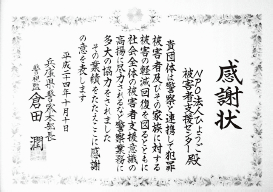 感謝状
NPO法人ひょうご
被害者支援センター殿
貴団体は警察と連携して犯罪
被害者及びその家族に対する
被害の軽減回復を図るとともに
社会全体の被害者支援意識の
高揚に尽力されるなど警察業務に
多大の協力をされました
その業績をたたえここに感謝
の意を表します
平成二十四年十月十日
兵庫県警察本部長
警視監 倉田 潤